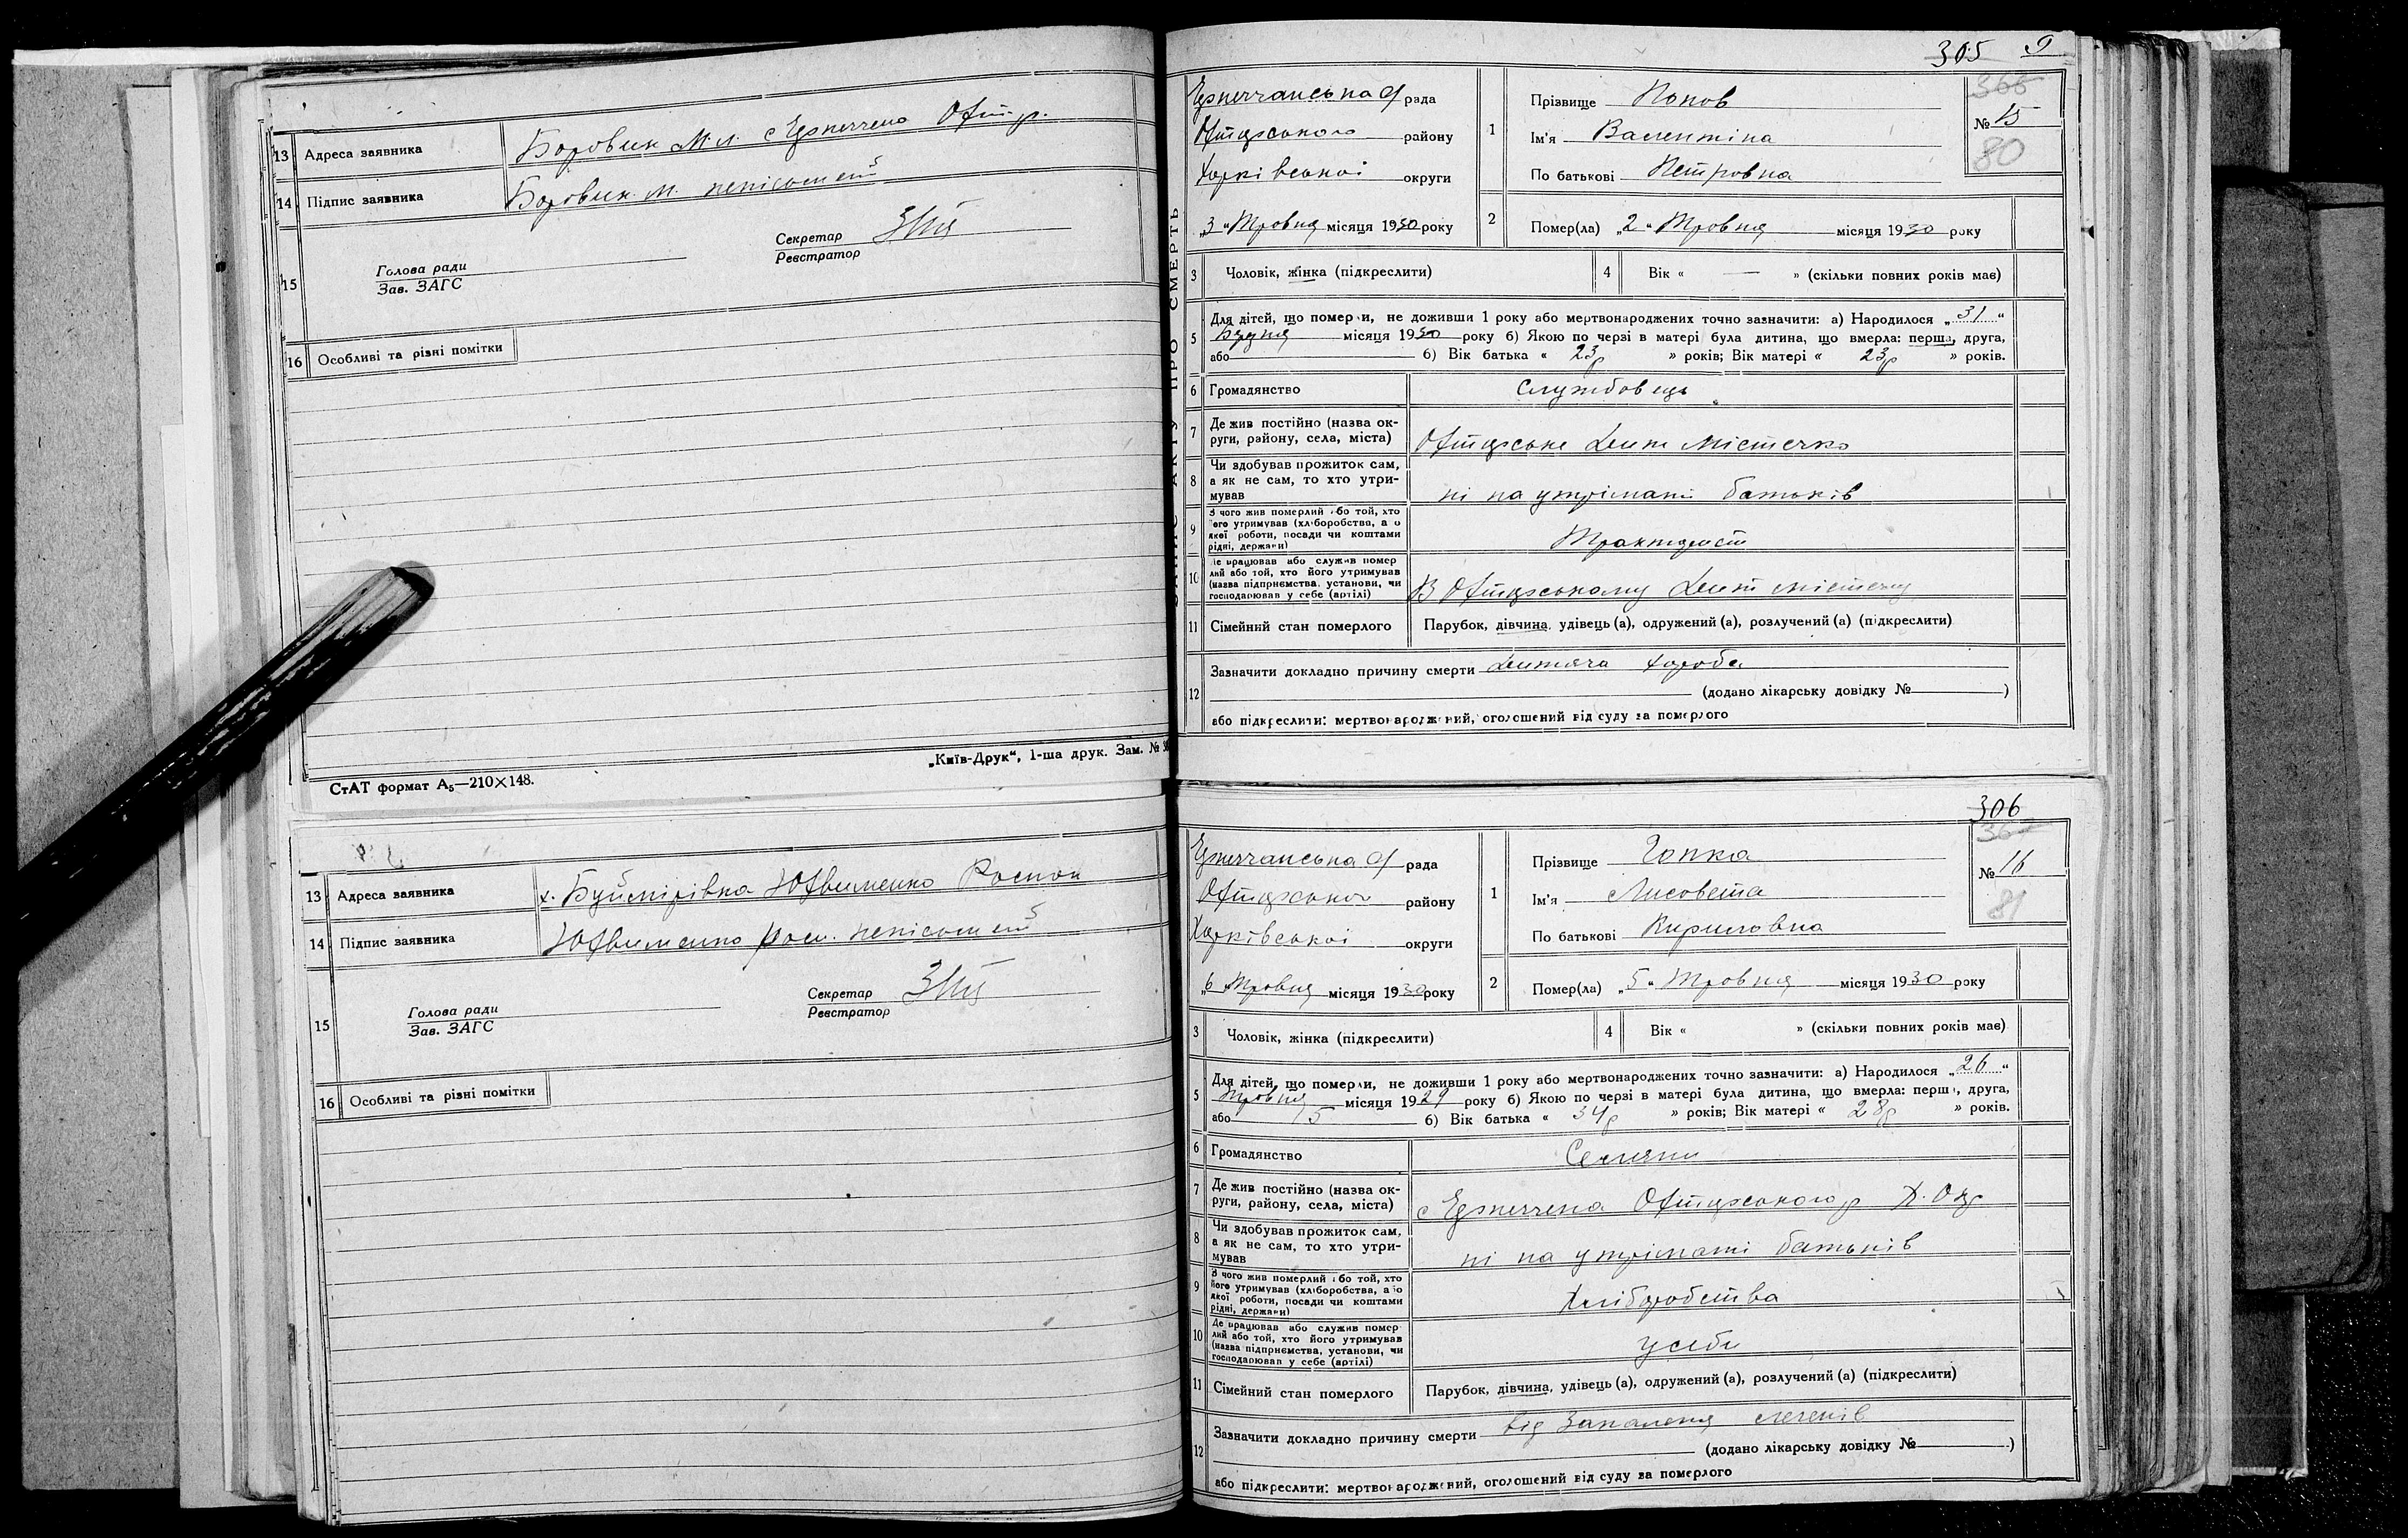 13 Адреса заявника Боровик М.
14 Підпис заявника Боровик М.
15 Голова ради
Зав. ЗАГС
Секретар
Реєстратор
16 Особливі та різні помітки
„Київ-Друк“, 1-ша друк. Зам. №
СтАТ формат А₅—210×148.
13 Адреса заявника х. Буймірівка
14 Підпис заявника
15 Голова ради
Зав. ЗАГС
Секретар
Реєстратор
16 Особливі та різні помітки
305
ЗАПИС АКТУ ПРО СМЕРТЬ
рада
району
Харківської округи
„3“ Травня місяця 1930 року
1 Прізвище Попов
Ім'я Валентіна
По батькові Петровна
№ 15
80
2 Помер(ла) „2“ Травня місяця 1930 року
3 Чоловік, жінка (підкреслити)
4 Вік « — » (скільки повних років має)
5 Для дітей, що померли, не доживши 1 року або мертвонароджених точно зазначити: а) Народилося „31“
місяця 1930 року б) Якою по черзі в матері була дитина, що вмерла: перша, друга,
або б) Вік батька « 23р » років; Вік матері « 23р » років.
6 Громадянство Службовець
7 Де жив постійно (назва ок-
руги, району, села, міста) містечко
8 Чи здобував прожиток сам,
а як не сам, то хто утри-
мував ні на утрімані батьків
9 З чого жив померлий або той, хто
його утримував (хліборобства, або
якої роботи, посади чи коштами
рідні, держави) Трактарист
10 Де працював або служив помер
лий або той, хто його утримував
(назва підприємства, установи, чи
господарював у себе (артілі)
11 Сімейний стан померлого Парубок, дівчина, удівець (а), одружений (а), розлучений (а) (підкреслити)
12 Зазначити докладно причину смерти Дитяча хароба
(додано лікарську довідку № )
або підкреслити: мертвонароджений, оголошений від суду за померлого
306
рада
району
Харківської округи
„6“ Травня місяця 1930 року
1 Прізвище Гопка
Ім'я Лисовета
По батькові Кириловна
№ 16
81
2 Помер(ла) „5“ Травня місяця 1930 року
3 Чоловік, жінка (підкреслити)
4 Вік « » (скільки повних років має)
5 Для дітей, що померли, не доживши 1 року або мертвонароджених точно зазначити: а) Народилося „26“
Травня місяця 1929 року б) Якою по черзі в матері була дитина, що вмерла: перша, друга,
або 5 б) Вік батька « 34р » років; Вік матері « 28р » років.
6 Громадянство Селяни
7 Де жив постійно (назва ок-
руги, району, села, міста)
8 Чи здобував прожиток сам,
а як не сам, то хто утри-
мував ні на утрімані батьків
9 З чого жив померлий або той, хто
його утримував (хліборобства, або
якої роботи, посади чи коштами
рідні, держави) Хліборобства
10 Де працював або служив помер
лий або той, хто його утримував
(назва підприємства, установи, чи
господарював у себе (артілі) у себе
11 Сімейний стан померлого Парубок, дівчина, удівець (а), одружений (а), розлучений (а) (підкреслити)
12 Зазначити докладно причину смерти від Запаленя легенів
(додано лікарську довідку № )
або підкреслити: мертвонароджений, оголошений від суду за померлого